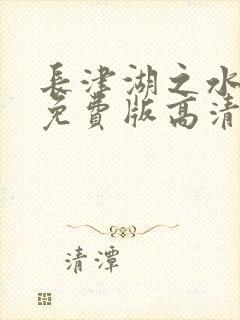 長津湖之水
免費版高清
清潭